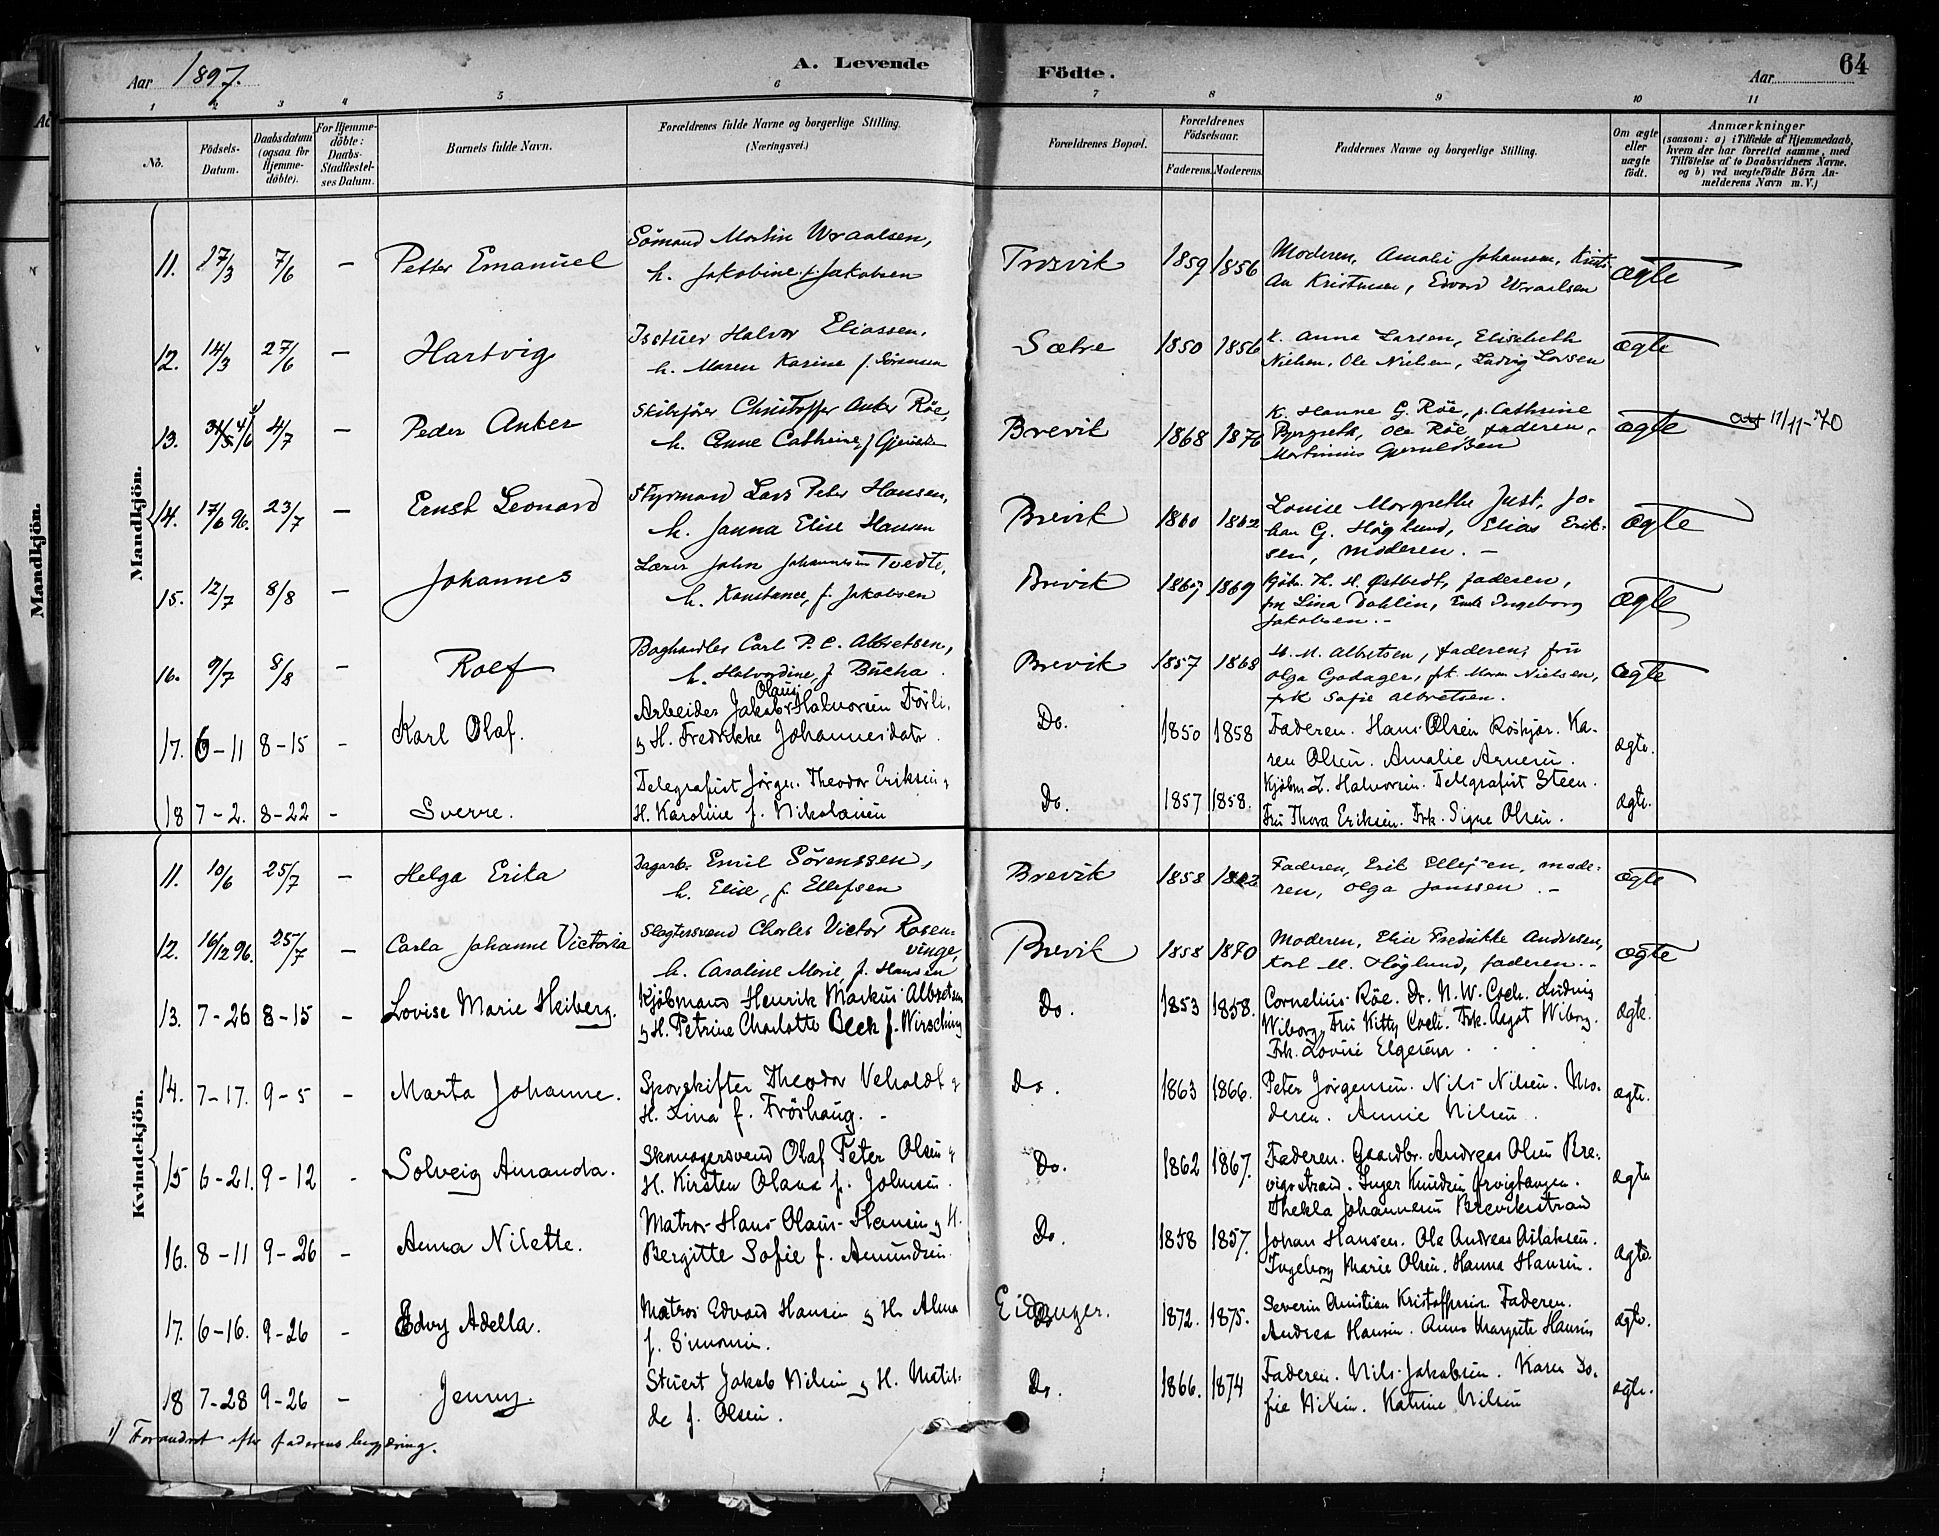 Aar 1897.
A. Levende Födte.
Aar
64
1 2 3 4 5 6 7 8 9 10 11
No.
Födsels-Datum.
Daabsdatum (ogsaa for Hjemme-döbte).
For Hjemme-döbte: Daabs-Stadfæstel-ses Datum.
Barnets fulde Navn.
Forældrenes fulde Navne og borgerlige Stilling. (Næringsvei.)
Forældrenes Bopæl.
Forældrenes Födselsaar.
Faderens. Moderens.
Faddernes Navne og borgerlige Stilling.
Om ægte eller uægte födt.
Anmærkninger
(saasom: a) i Tilfælde af Hjemmedaab, hvem der har forrettet samme, med Tilföielse af to Daabsvidners Navne. og b) ved uægtefödte Börn An-melderens Navn m. V.)
Mandkjön.
11. 27/3 7/6 — Petter Emanuel
Sömand Martin Wraalsen,
h. Jakobine f. Jakobsen
Trosvik 1859 1856
Moderen, Amalie Johansen, Kristi-
an Kristensen, Edvard Wraalsen
ægte
12. 14/3 27/6 — Hartvig
Halvor Eliassen,
h. Maren Karine f. Sörensen
Sætre 1850 1856
K. Anna Larsen, Elisabeth
Nielsen, Ole Nielsen, Ludvig Larsen
ægte
13. 4/6 4/7 — Peder Anker
Skibsförer Christoffer Anker Röe,
h. Anne Cathrine, f
Brevik 1868 1876
K. Hanne G. Röe, f. Cathrine
Ole Röe, faderen,
Martinius
ægte
11/11-40
14. 17/6 96. 23/7 — Ernst Leonard
Styrmand Lars Peter Hansen,
h. Janna Elise Hansen
Brevik 1860 1862
Louise Margrethe Just, Jo-
han G. Höglund, Elias Erik-
sen, moderen. —
ægte
15. 12/7 8/8 — Johannes
Lærer John Johannesen Tvedte,
h. Konstance, f. Jakobsen
Brevik 1867 1869
Gjöb. H. H. Östvedt, faderen,
frk Lina Dahlin, Ingeborg
Jakobsen. —
ægte
16. 9/7 8/8 — Rolf
Boghandler Carl P. C. Albretsen,
h. Halvordine, f Bucha.
Brevik 1857 1868
H. M. Albretsen, faderen, fru
Olga Godager, frk. Maren Nielsen,
frk Sofie Albretsen.
ægte
17. 6-11 8-15 - Karl Olaf.
Olaus
Arbeider Jakob Halvorsen Törli.
g H. Fredrikke Johannesdatr.
Do. 1850 1858
Faderen. Hans Olsen Röskjær. Ka-
ren Olsen. Amalie Arnesen.
ægte.
18 7-2. 8-22 - Sverre.
Telegrafist Jörgen Theodor Eriksen g
H. Karoline f. Nikolaisen
Do. 1857 1858.
Kjöbm L. Halvorsen. Telegrafist Steen.
Fru Thora Eriksen. Frk. Signe Olsen.
ægte.
Kvindekjön.
11. 10/6 25/7 — Helga Erika
Dagarb. Emil Sörenssen,
h. Elise, f. Ellefsen
Brevik 1858 1862
Faderen, Erik Ellefsen, mode-
ren, Olga Janssen. —
ægte
12. 16/12 96. 25/7 — Carla Johanne Victoria
Slagtersvend Charles Victor Rosen-
vinge,
h. Caroline Marie f. Hansen
Brevik 1858 1870
Moderen, Elise Fredrikke Andresen,
Karl M. Höglund, faderen. —
ægte
13. 7-26 8-15 - Lovise Marie Heiberg.
Kjöbmand Henrik Markus Albretsen
g H. Petrine Charlotte Beck f. Wirsching
Do. 1853 1858.
Cornelius Röe. Dr. N. W. Coch. Ludvig
Wiborg. Fru Kitty Coch. Frk. Aagot Wiborg.
Frk. Lovise Elgesem.
ægte.
14. 7-17. 9-5 - Marta Johanne.
Sporskifter Theodor Veholdt g
H. Lina f. Fröshaug. -
Do. 1863 1866.
Peter Jörgensen. Nils Nilsen. Mo-
deren. Annie Nilsen.
ægte.
15 6-21. 9-12 - Solveig Amanda.
Skomagersvend Olaf Peter Olsen g
H. Kirsten Olava f. Johnsen.
Do. 1862 1867.
Faderen. Gaardbr. Andreas Olsen Bre-
vigsstrand. Inger Knudsen Örvigtangen.
Thekla Johannesen Brevikstrand
ægte
16. 8-11 9-26 - Anna Nilette.
Matros Hans Olaus Hansen g H.
Bergitte Sofie f. Amundsen.
Do. 1858 1857.
Johan Hansen. Ole Andreas Aslaksen.
Ingeborg Marie Olsen. Hanna Hansen.
ægte.
17. 6-16. 9-26 - Edvy Adella.
Matros Edvard Hansen g H. Alma
f. Simonsen.
Eidanger. 1872. 1875.
Severin Kristian Kristoffersen. Faderen.
Andrea Hansen. Anne Margrete Hansen
ægte.
18 7-28 9-26 - Jenny.
Stuert Jakob Nilsen g H. Matil-
de f. Olsen.
Do. 1866. 1874
Faderen. Nils Jakobsen. Karen So-
fie Nilsen. Katrine Nilsen
ægte.
1) Forandret efter faderens begjæring.